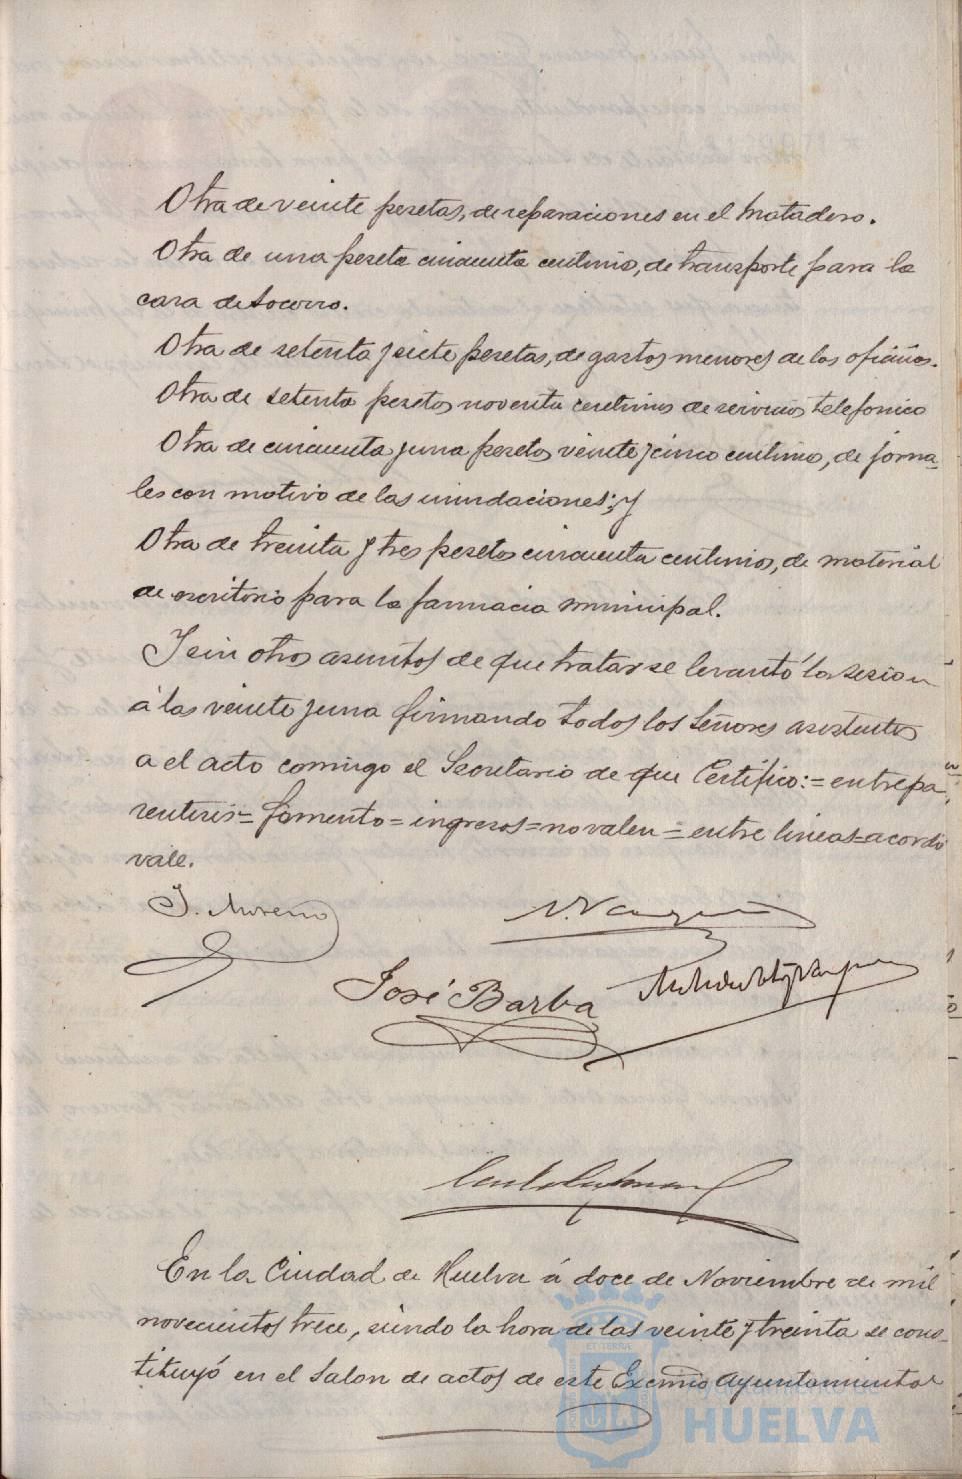 Otra de veinte pesetas, de reparaciones en el Matadero.
Otra de una peseta cincuenta centimos, de transporte para la
casa de Socorro.
Otra de setenta y siete pesetas, de gastos menores de las oficinas.
Otra de setenta pesetas noventa centimos de servicio telefonico
Otra de cincuenta y una pesetas veinte y cinco centimos, de jorna-
les con motivo de las inundaciones; y
Otra de treinta y tres pesetas cincuenta centimos, de material
de escritorio para la farmacia municipal.
Y sin otros asuntos de que tratar se levantó la sesion
á las veinte y una firmando todos los Señores asistentes
a el acto comigo el Secretario de que Certifico:=entrepa
rentesis=fomento=ingresos=no valen=entre lineas=acordó
vale.
J. Moreno
José Barba
En la Ciudad de Huelva á doce de Noviembre de mil
novecientos trece, siendo la hora de las veinte y treinta se cons-
tituyó en el Salon de actos de este Excmo Ayuntamiento
Ayuntamiento de
HUELVA